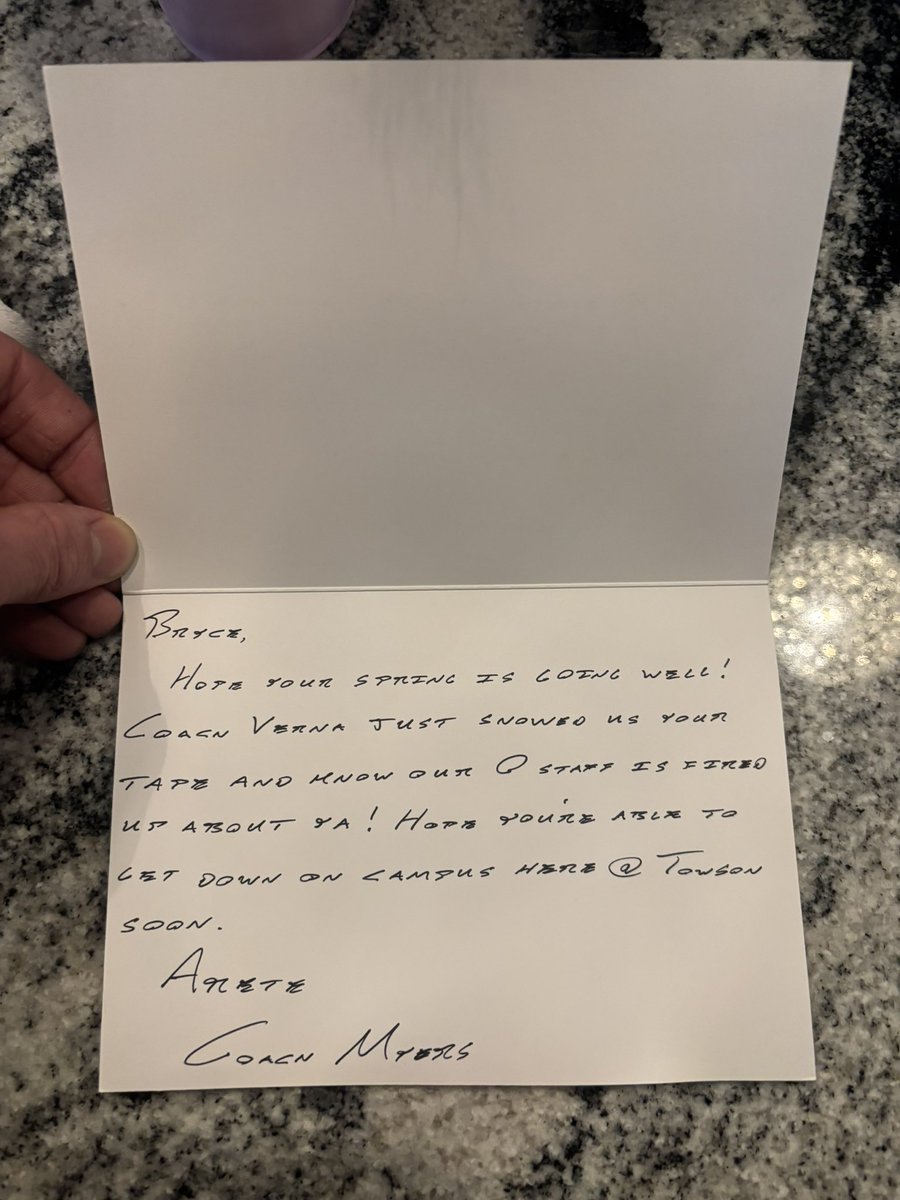 Bryce,
Hope your spring is going well!
Coach Verna just showed us your
tape and know our O staff is fired
up about ya! Hope you're able to
get down on campus here @ Towson
soon.
Arete
Coach Myers